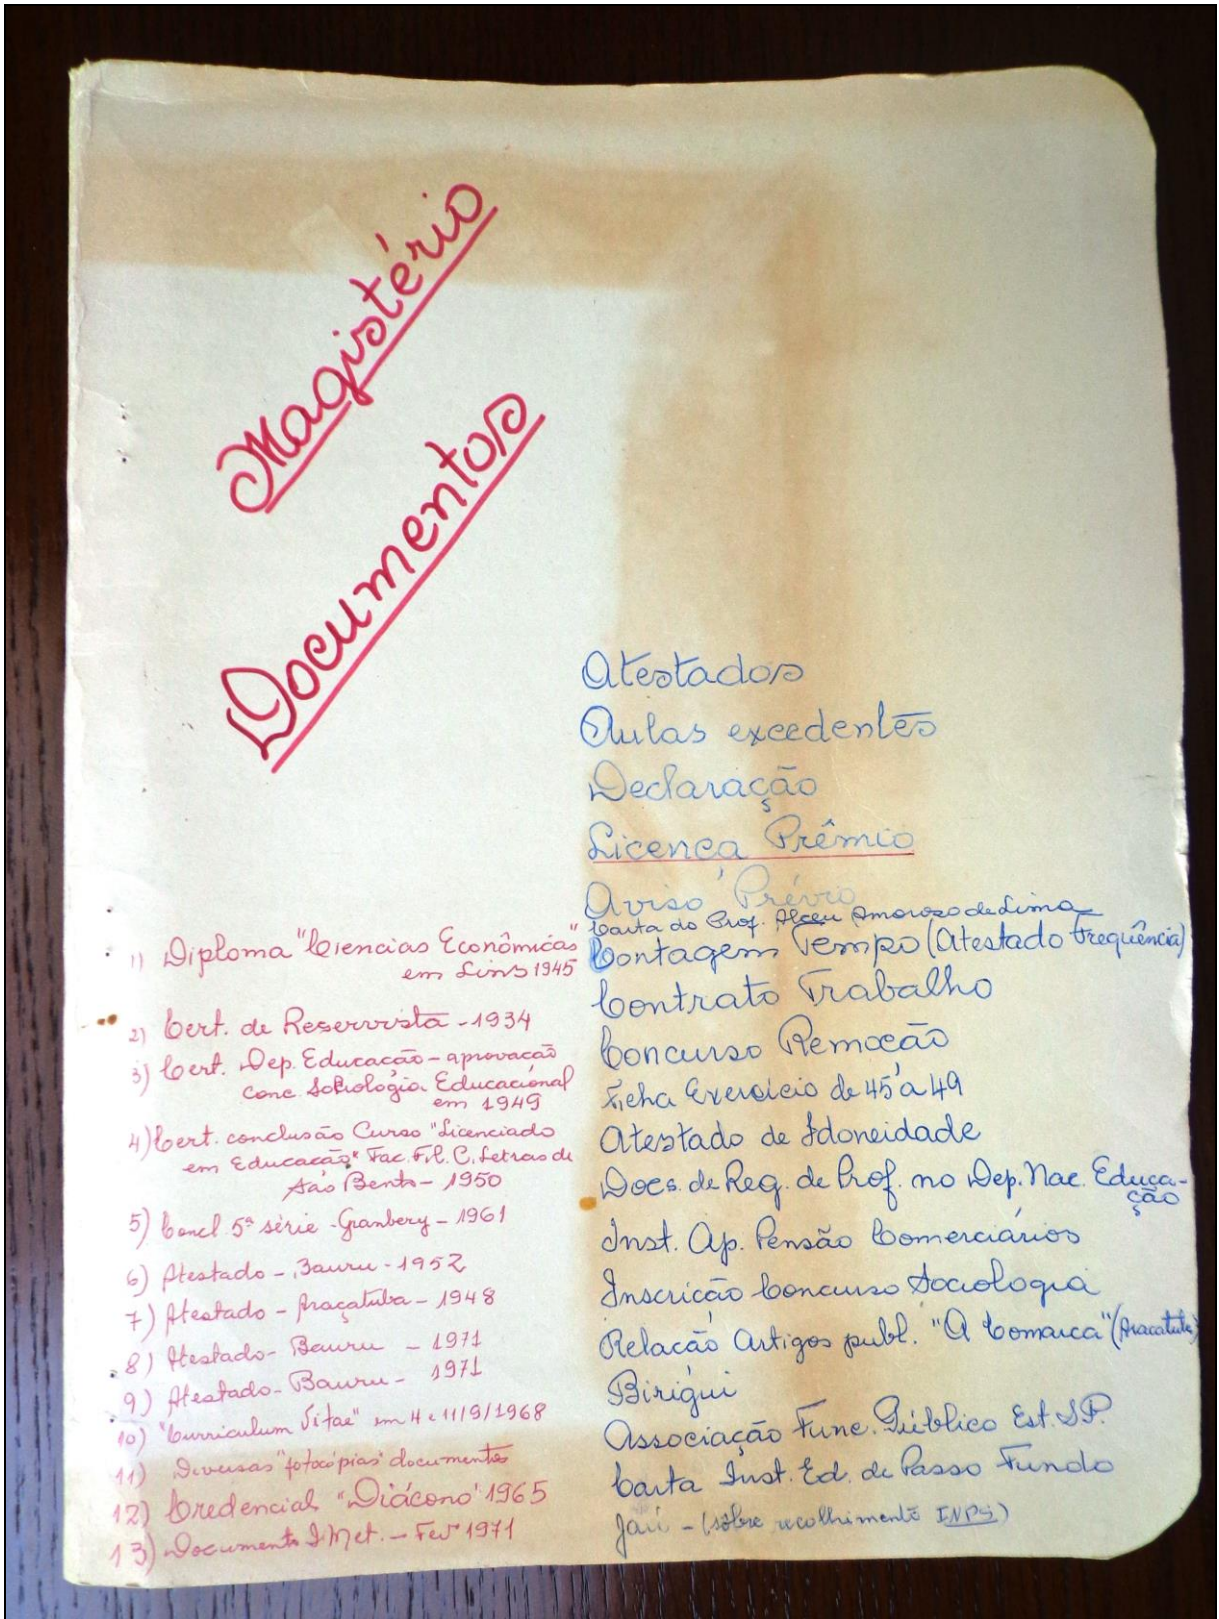 Magistério
Documentos
Atestados
Aulas excedentes
Declaração
Licença Prêmio
Aviso Prévio
Carta do Prof. Alceu Amoroso de Lima
Contagem Tempo (Atestado Freqüência)
Contrato Trabalho
Concurso Remoção
Ficha Exercício de 45 a 49
Atestado de Idoneidade
Docs. de Reg. de Prof. no Dep. Nac. Educa-
ção
Inst. Ap. Pensão Comerciários
Inscrição Concurso Sociologia
Relação Artigos publ. "A Comarca" (Araçatuba)
Birigui
Associação Func. Público Est. S.P.
Carta Inst. Ed. de Passo Fundo
Jaú - (sôbre recolhimento INPS)
1) Diploma "Ciencias Econômicas"
em Lins 1945
2) Cert. de Reservista - 1934
3) Cert. Dep. Educação - aprovação
conc. Sociologia Educacional
em 1949
4) Cert. conclusão Curso "Licenciado
em Educação" Fac. Fil. C. Letras de
São Bento - 1950
5) Concl. 5ª série - Granbery - 1961
6) Atestado - Bauru - 1952
7) Atestado - Araçatuba - 1948
8) Atestado - Bauru - 1971
9) Atestado - Bauru - 1971
10) "Curriculum Vitae" em 4 e 11/9/1968
11) Diversas "fotocópias" documentos
12) Credencial "Diácono" 1965
13) Documento I Met. - Fevº 1971